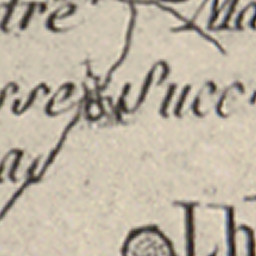 tre Ma
sse Succ
ay
Lh